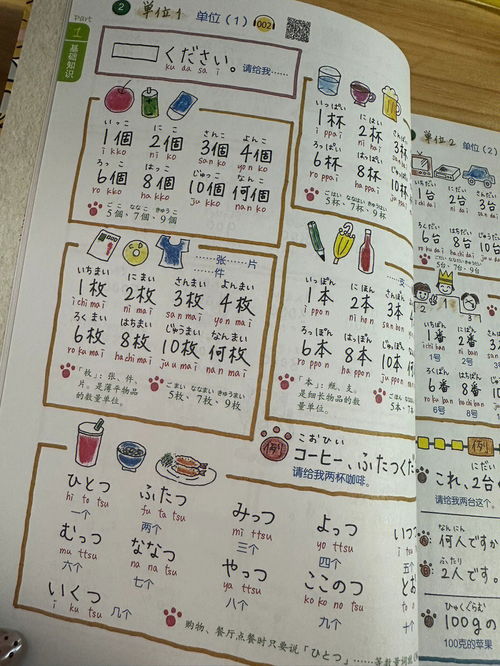 Part
1
基础知识
2 単位1 单位（1） 002
ください。
ku da sa i 请给我……
いっこ にこ さんこ よんこ
1個 2個 3個 4個
i kko ni ko san ko yon ko
ろっこ はっこ じゅっこ なんこ
6個 8個 10個 何個
ro kko ha kko ju kko nan ko
ごこ ななこ きゅうこ
5個、7個、9個
……张……片
……件
いちまい にまい さんまい よんまい
1枚 2枚 3枚 4枚
ichi mai ni mai san mai yon mai
ろくまい はちまい じゅうまい なんまい
6枚 8枚 10枚 何枚
roku mai hachi mai juu mai nan mai
「枚」：张、件、
片。是薄平物品
的数量单位。
ごまい ななまい きゅうまい
5枚、7枚、9枚
いっぱい にはい
1杯 2杯 3杯
i ppai ni hai
ろっぱい はっぱい
6杯 8杯 10杯
ro ppai ha ppai
ごはい ななはい きゅうはい
5杯、7杯、9杯
……支
いっぽん にほん
1本 2本 3本
i ppon ni hon san
ろっぽん はっぽん
6本 8本 10本
ro ppon ha ppon
「本」：瓶、支。
是细长物品的数
量单位。
5本、7本
例 こおひい
コーヒー、ふたつくだ
请给我两杯咖啡。
ひとつ ふたつ みっつ よっつ いつ
hi to tsu fu ta tsu mi ttsu yo ttsu i tsu
一个 两个 三个 四个 五个
むっつ ななつ やっつ ここのつ とお
mu ttsu na na tsu ya ttsu ko ko no tsu to o
六个 七个 八个 九个 十个
いくつ
i ku tsu 几个
购物、餐厅点餐时只要说「ひとつ」……等数量词就
単位2 单位（2）
いちだい にだい さんだい
1台 2台 3台
ichi dai ni dai san dai
6台 8台 10台
5台、7台、9台
1 2 3
いちばん にばん
1番 2番 3番
ichi ban ni ban
1号 2号
6番 8番 10
roku ban hachi ban
6号 8号
例
にだい
これ、2台
请给我两台这个。
なんにん
何人ですか
ふたり
2人です
ひゃくぐらむ
100gの
100克的苹果